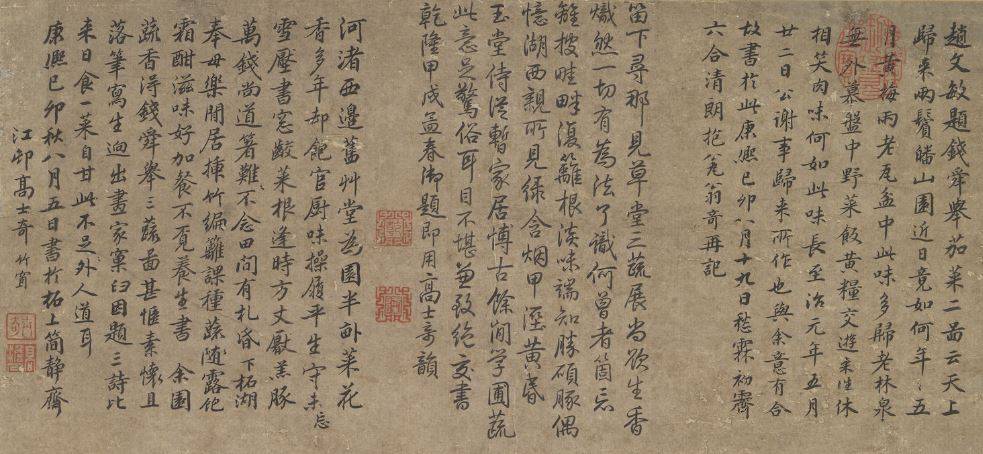 趙文敏題錢舜舉茄菜二啚云天上
歸來兩鬢皤山園近日竟如何年〻五
月黃梅雨老瓦盆中此味多歸老林泉
無外慕盤中野菜飯黃糧交遊来往休
相笑肉味何如此味長至治元年五月
廿二日公謝事歸来所作也與余意有合
故書於此康熙己卯八月十九日愁霖初霽
六合清朗抱瓮翁奇再記
笛下尋那見草堂三蔬展尚欲生香
熾然一切有為法了識何曾者箇忘
雛挍畦畔復籬根淡味端知勝碩豚偶
憶湖西親所見綠含烟甲溼黃昏
玉堂侍從暫家居博古餘閒學圃蔬
此意足驚俗耳目不堪兼致絕交書
乾隆甲戌孟春御題即用高士奇韻
河渚西邊舊艸堂為園半畝菜花
香多年却飽官厨味操履平生守未忘
雪壓書窓齩菜根逢時方丈厭羔豚
萬錢尚道箸難下不念田間有札昏 柘湖
奉母樂閒居揷竹編籬課種蔬隨露飽
霜酣滋味好加餐不覓養生書 余園
蔬香得錢舜舉三蔬啚甚愜素懷且
落筆寫生逈出畫家窠臼因題三詩比
来日食一菜自甘此不足外人道耳
康熙己卯秋八月五日書於柘上簡靜齋
江邨高士奇 竹窗